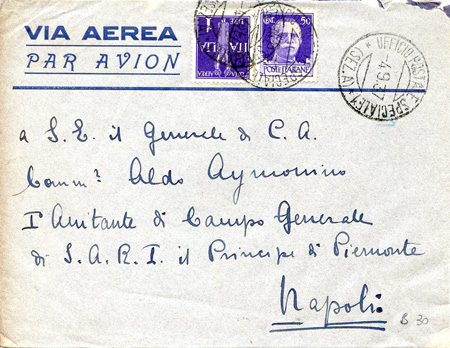 VIA AEREA
PAR AVION
LIRE 1
50
POSTE ITALIANE
UFFICIO POSTALE SPECIALE
4.9.37
a S. E. il Generale di C. A.
Comm. Aldo Aymonino
Iº Aiutante di Campo Generale
di S. A. R. I. il Principe di Piemonte
Napoli
B 30